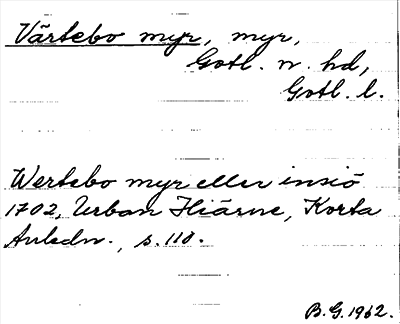 Värtebo myr, myr,
Gotl. n. hd,
Gotl. l.
Wertebo myr eller insiö
1702, Urban Hiärne, Korta
Anledn., s. 110.
B.G. 1962.